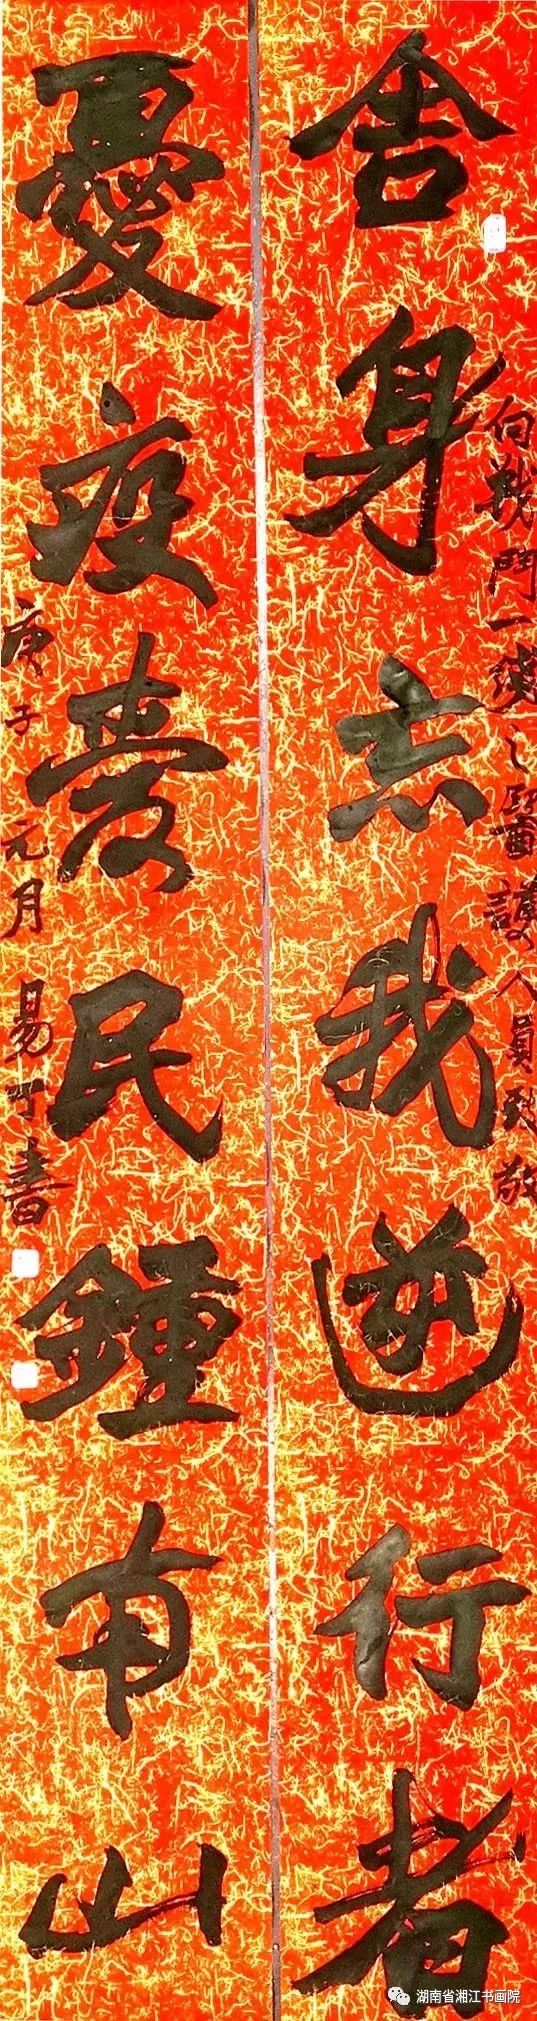 向戰鬥一綫之醫護人員致敬
舍身忘我逆行者
憂疫愛民鍾南山
庚子元月 易 書
湖南省湘江书画院